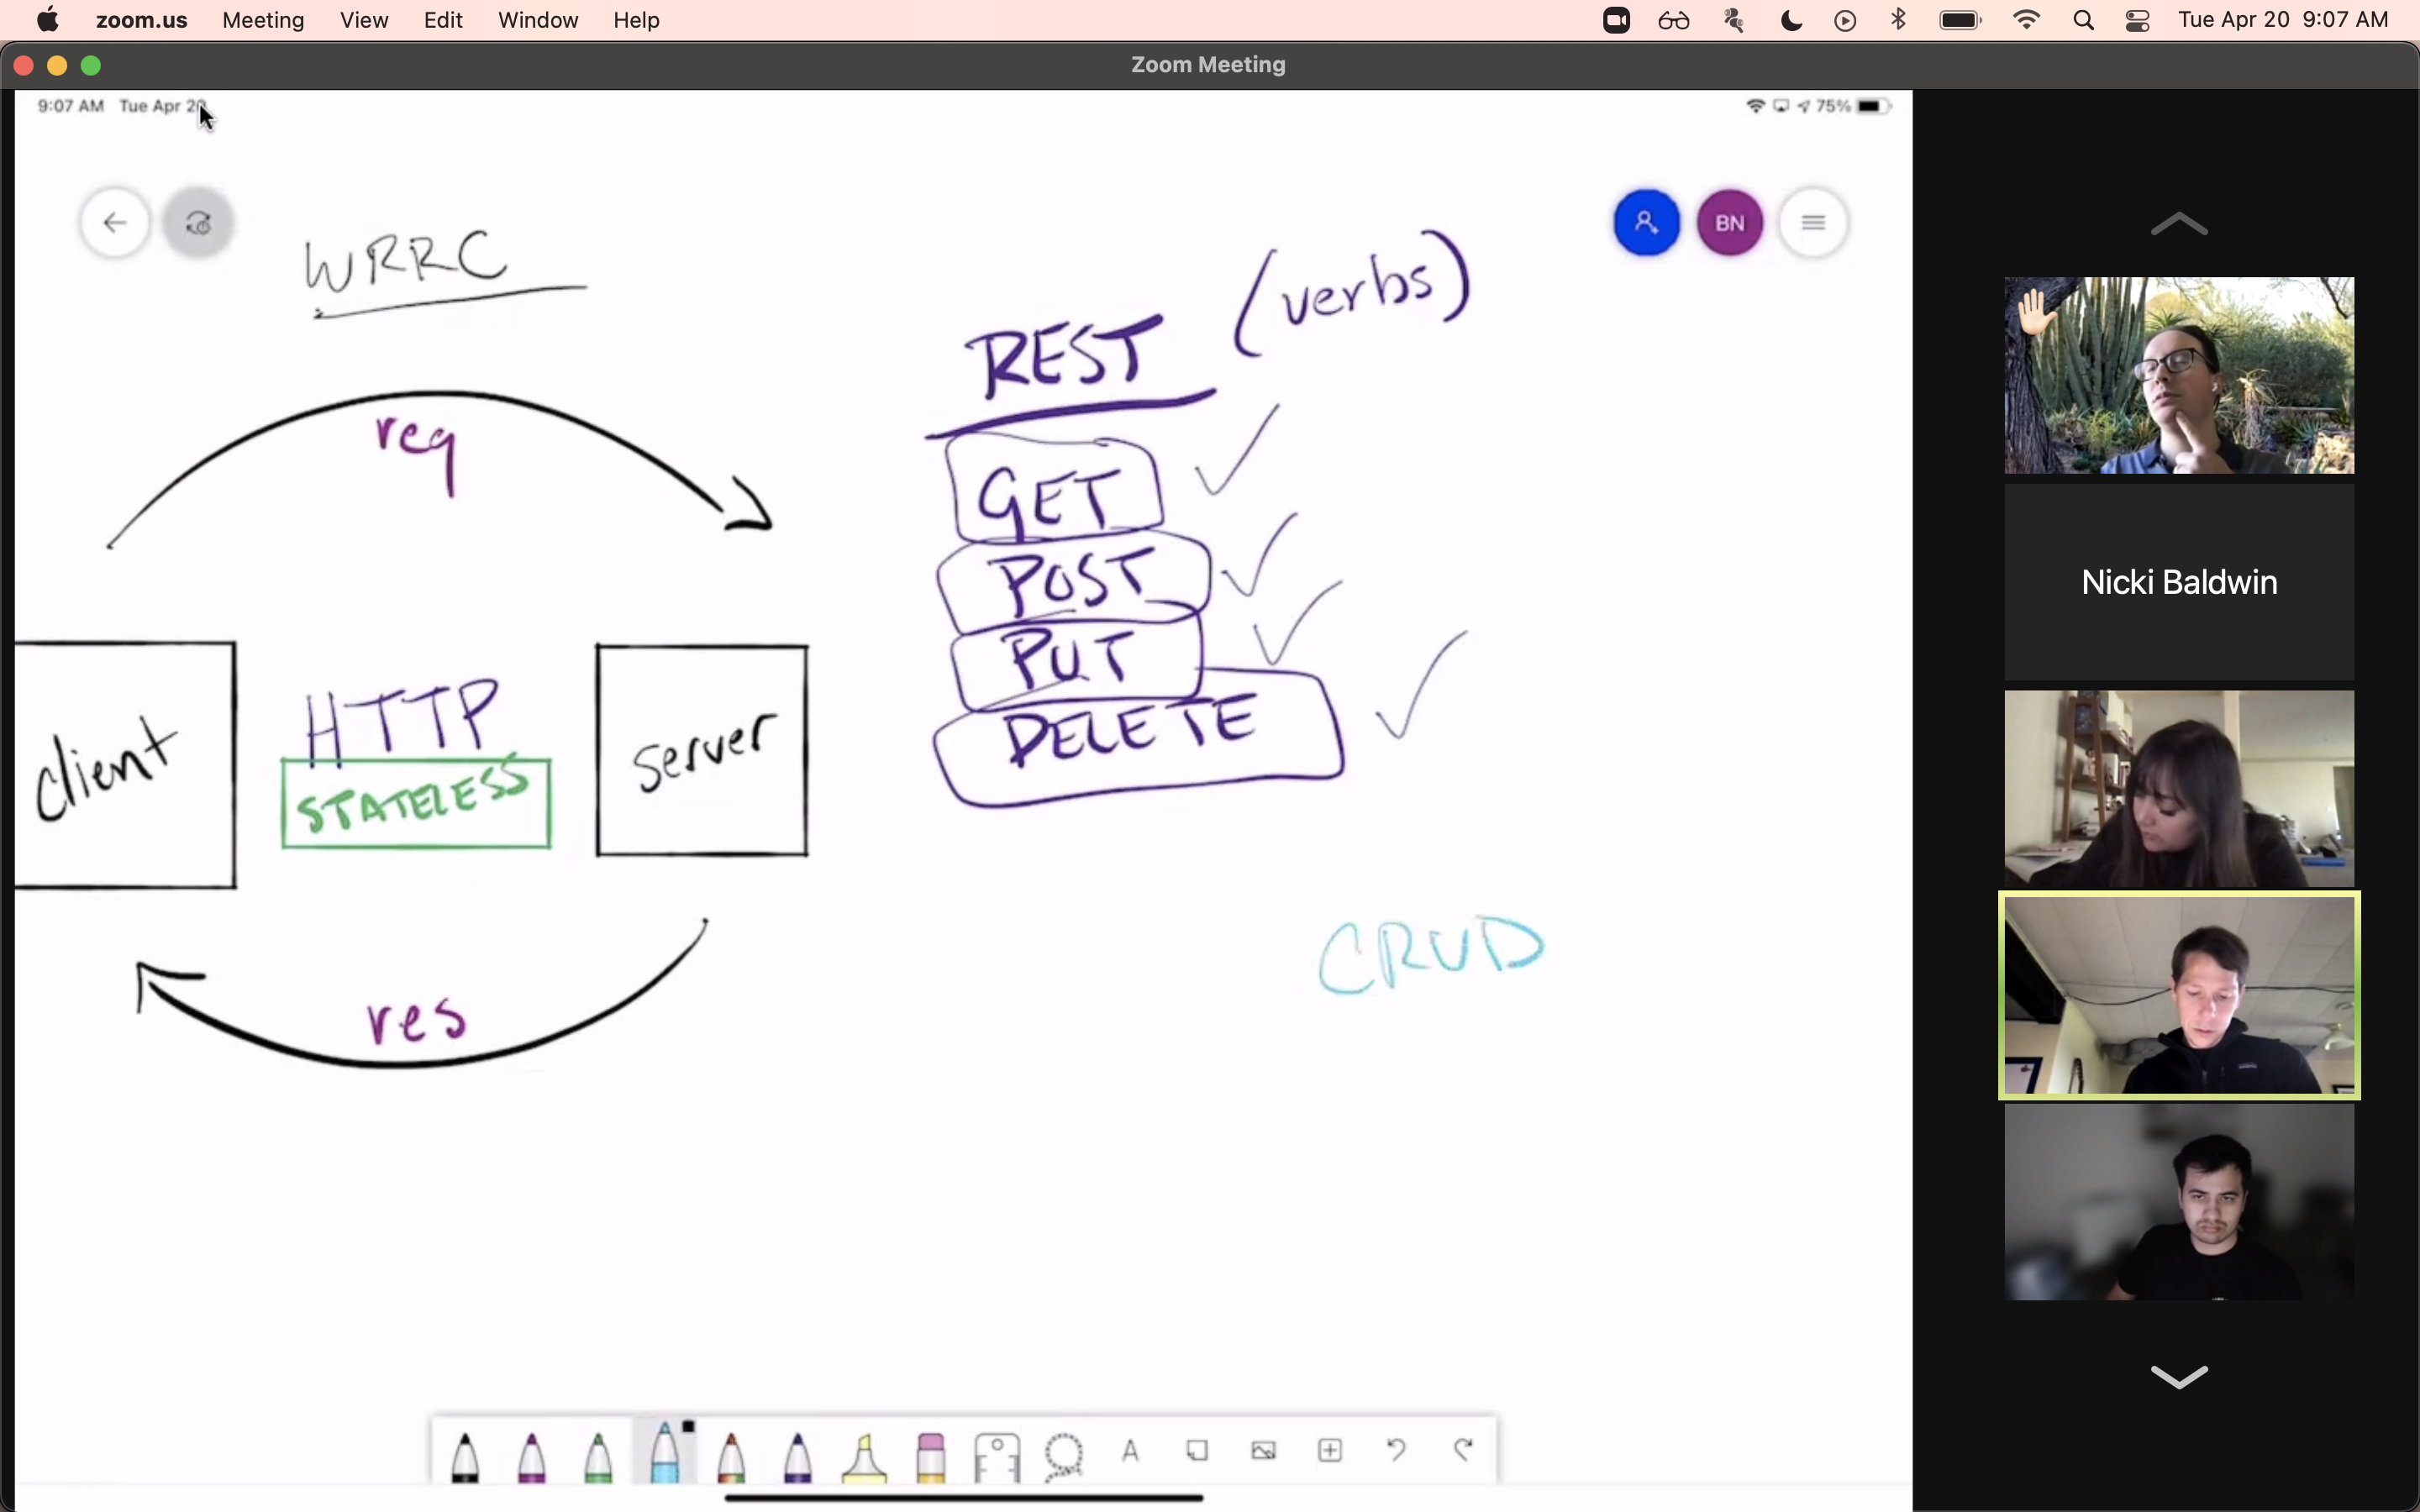 zoom.us Meeting View Edit Window Help Tue Apr 20 9:07 AM
Zoom Meeting
9:07 AM Tue Apr 20 75%
WRRC
req
client
HTTP
STATELESS
server
res
REST (verbs)
GET
POST
PUT
DELETE
CRUD
BN
A
Nicki Baldwin